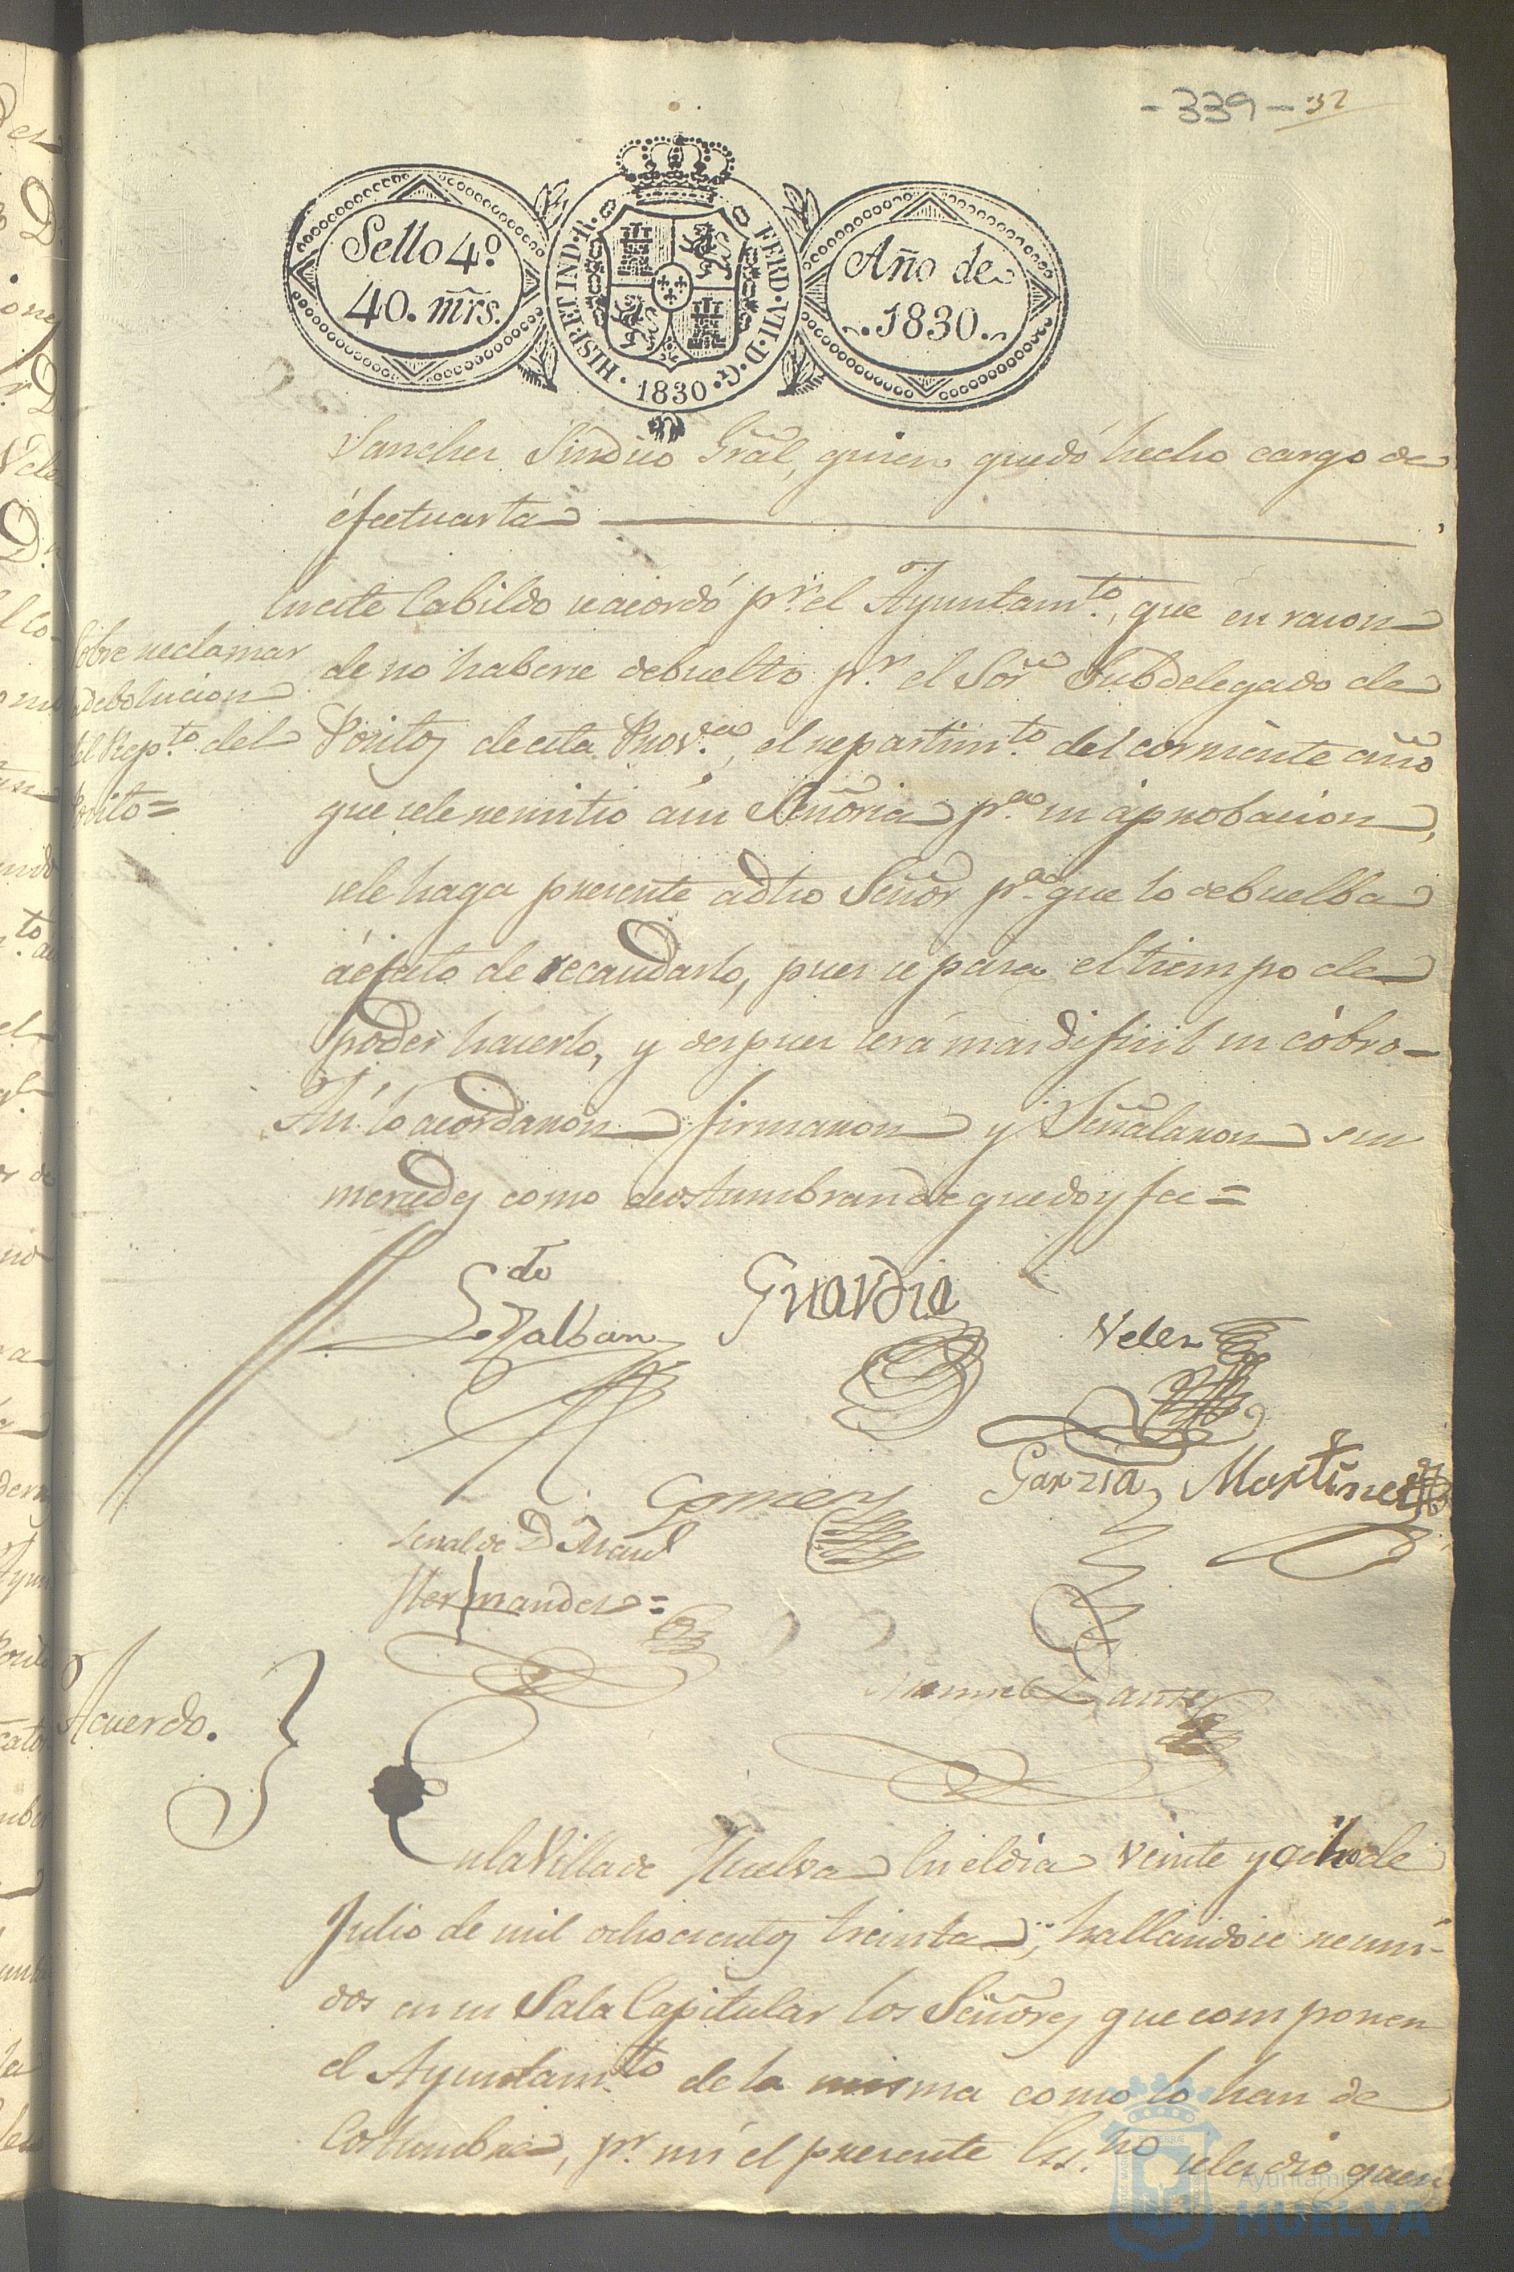 - 339 - 32
Sello 4º
40. mrs.
HISP. ET IND. R. FERD. VII. D. G. 1830
Año de
1830.
Sanchez Sindico Gral, quien quedó hecho cargo de
éfectuarla
En este Cabildo se acordó pr. el Ayuntamto., que en razon
de no haberse debuelto pr. el Sor. Subdelegado de
Positos de esta Prova., el repartimto. del corriente año
que se le remitio á su Señoria pa. su áprobacion,
se le haga presente a dho Señor pa. que lo debuelba
á efecto de recaudarlo, pues se pasa el tiempo de
poder hacerlo, y despues será mas dificil su cobro -
Asi lo acordaron firmaron y Señalaron sus
mercedes como acostumbran de que doy fee =
Sobre reclamar
la debolucion
del Repto. del
Posito =
Ldo
Zalban
Guardia
Velez
Garzia
Martinez
Gomez
Señal de D. Manl.
Hernandez =
Acuerdo.
En la Villa de Huelva En el dia veinte y ocho de
Julio de mil ochocientos treinta; hallandose reuni-
dos en su Sala Capitular los Señores que componen
el Ayuntamto. de la misma como lo han de
Costumbre, pr. mi el presente Essno. se les dio quen
Ayuntamiento
HUELVA